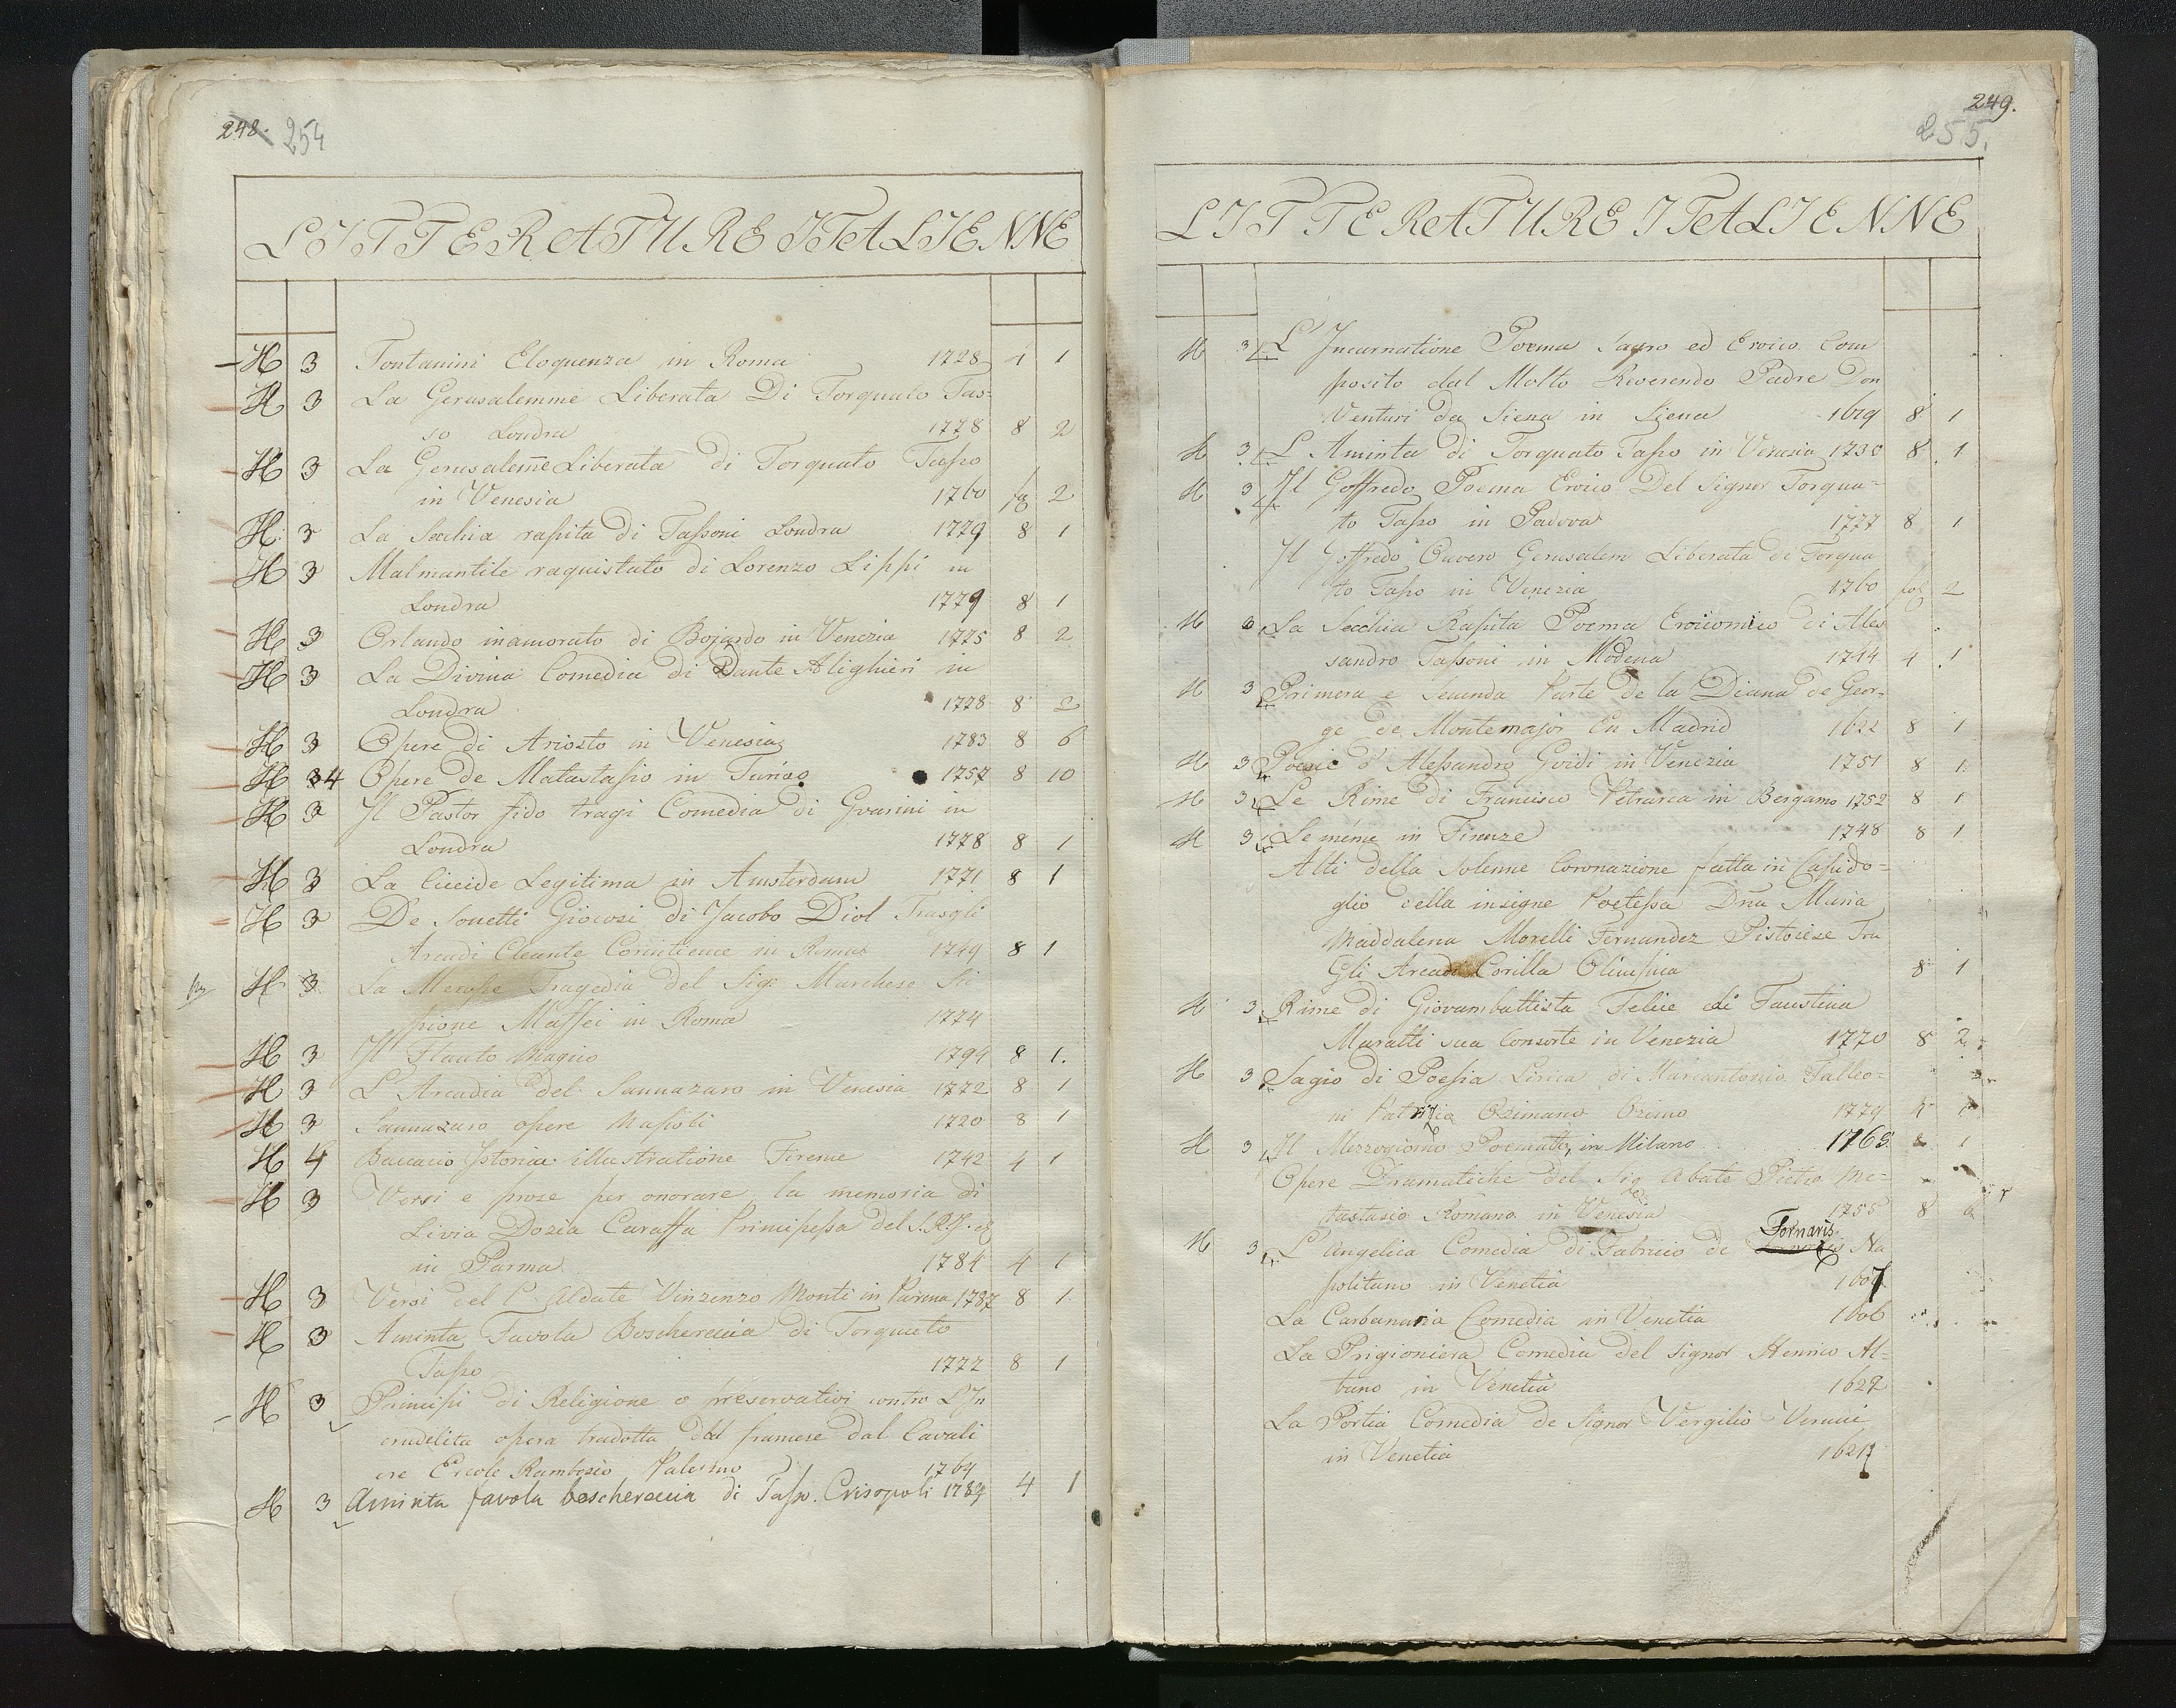 248. 254
LITTERATURE ITALIENNE
H 3 Fontanini Eloquenza in Roma 1728 4 1
H 3 La Gerusalemme Liberata Di Torquato Tas=
so Londra 1778 8 2
H 3 La Gerusalem̄e Liberata di Torquato Tasso
in Venesia 1760 fo 2
H 3 La Secchia rapita di Tassoni Londra 1779 8 1
H 3 Malmantile raquistato di Lorenzo Lippi in
Londra 1779 8 1
H 3 Orlando inamorato di Bojardo in Venezia 1725 8 2
H 3 La Divina Comedia di Dante Alighieri in
Londra 1778 8 2
H 3 Opere di Ariosto in Venesia 1783 8 6
H 34 Opere de Matastasio in Turino 1757 8 10
H 3 Il Pastor fido tragi Comedia di Gvarini in
Londra 1778 8 1
H 3 La Cicceide Legitima in Amsterdam 1771 8 1
H 3 De Sonetti Giocosi di Jacobo Diol Frasgli
Arcadi Cleante in Roma 1749 8 1
H 3 La Merope Tragedia del Sig: Marchese Sci
pione Maffei in Roma 1774
H 3 Il Flauto Magico 1794 8 1.
H 3 L'Arcadia del Sannazaro in Venesia 1772 8 1
H 3 Sannazaro opere Napoli 1720 8 1
H 4 Baccacio Istoria illustratione Firenze 1742 4 1
H 3 Versi e prose per onorare la memoria di
Livia Dozia Caraffa Principessa del S.R.J.
in Parma 1784 4 1
H 3 Versi del C. Aldate Vinzenzo Monti in Parma 1787 8 1
H 3 Aminta Favola Boscherecia di Torquato
Tasso 1772 8 1
H 3 Principi di Religione o preservativi contro L'In
crudelita opera tradotta dal franzese dal Cavali
ere Ercole Palermo 1764
H 3 Aminta favola boscherecia di Tasso. Crisopoli 1789 4 1
249.
255.
LITTERATURE ITALIENNE
H 3 L'Incarnatione Poema Sagro ed Eroico Com
posito dal Molto Reverendo Padre Don
Venturi da Siena in Siena 1619 8 1
H 3 L Aminta di Torquato Tasso in Venesia 1730 8 1
H 3 Il Goffredo Poema Eroico Del Signor Torqua=
to Tasso in Padova 1777 8 1
Il Goffredo Ouvero Gerusalem Liberata di Torqua
to Tasso in Venezia 1760 fol 2
H 3 La Secchia Rapita Poema Eroicomico di Ales
sandro Tassoni in Modena 1744 4 1
H 3 Primera e Secunda Parte de la Diana de Geor=
ge de Montemajor En Madrid 1622 8 1
H 3 Poesie d'Alessandro Gvidi in Venezia 1751 8 1
H 3 Le Rime di Francisco Petrarca in Bergamo 1752 8 1
H 3 Le même in Firenze 1748 8 1
Atti della Solenne Coronazione fatta in Capido=
glio della insigne Poetessa Dnā Maria
Maddalena Morelli Fernandez Pistoiese Tra
Gli Arcadi Corilla Olimpica 8 1
H 3 Rime di Giovambattista Felice di Faustina
Maratti sua Consorte in Venezia 1770 8 2
H 3 Sagio di Poesia Lirica di Marcantonio Talleo=
ni Patrizia Osimano Osimo 1779 4 1
H 3 Il Mezzogiorno Poematto, in Milano 1765 8 1
Opere Dramatiche del Sig Abate Pietro Me=
tastasio Romano in Venesia 1755 8
H 3 L'Angelica Comedia di Fabricio de Fornaris Na
politano in Venetia 1607
La Carbonaria Comedia in Venetia 1606
La Prigioniera Comedia del Signor Henrico Al=
tano in Venetia 1622
La Portia Comedia de Signor Vergilio Verucci
in Venetia 1621